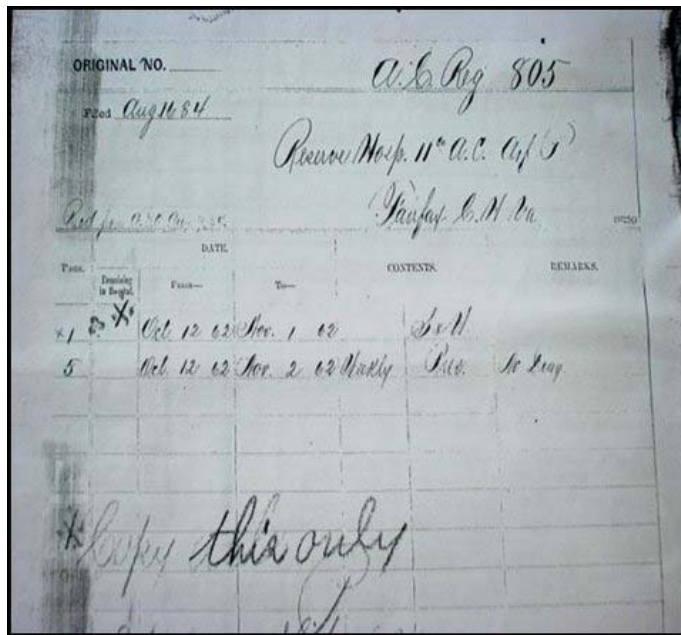 ORIGINAL NO.
A.C. Reg 805
Filed Aug 16 84
Reserve Hosp. 11th A.C. Arf (P)
Fairfax C.H. Va
DATE.
PAGE. Remaining in Hospital. FROM— TO— CONTENTS. REMARKS.
x1 X Oct 12 62 Nov. 1 62
5 Oct 12 62 Nov. 2 62 Weekly No Diag
X Copy this only